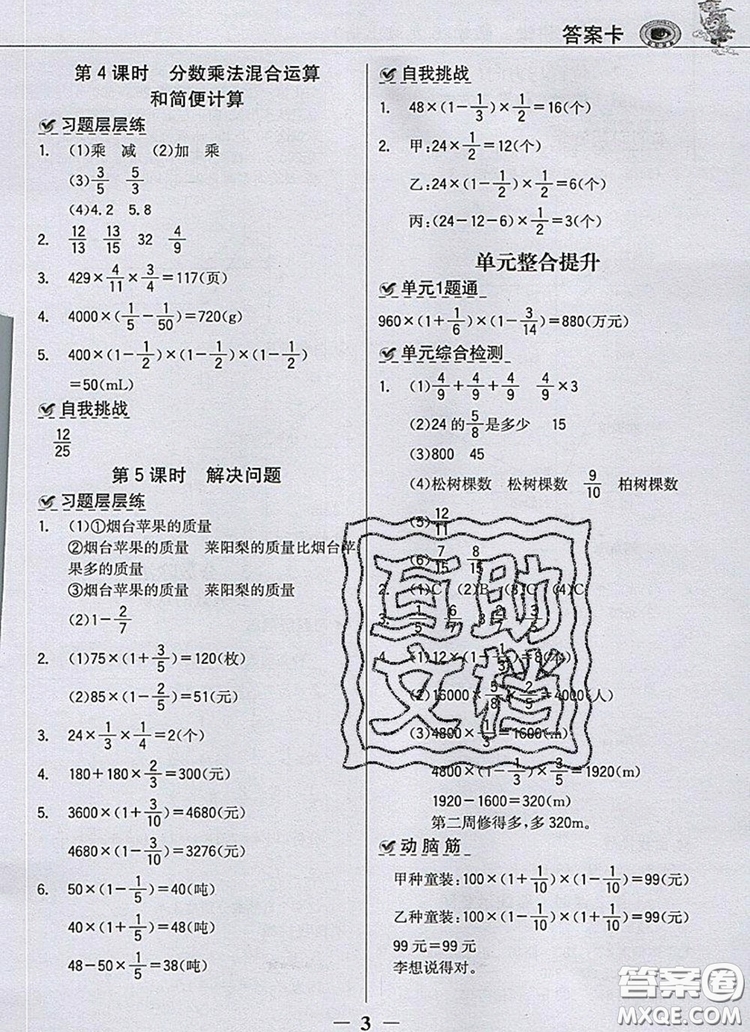 答案卡
第4课时 分数乘法混合运算
和简便计算
习题层层练
1. (1)乘 减 (2)加 乘
(3)3/5 5/3
(4)4.2 5.8
2. 12/13 13/15 32 4/9
3. 429×4/11×3/4=117(页)
4. 4000×(1/5-1/50)=720(g)
5. 400×(1-1/2)×(1-1/2)×(1-1/2)
=50(mL)
自我挑战
12/25
第5课时 解决问题
习题层层练
1. (1)①烟台苹果的质量
②烟台苹果的质量 莱阳梨的质量比烟台苹
果多的质量
③烟台苹果的质量 莱阳梨的质量
(2)1-2/7
2. (1)75×(1+3/5)=120(枚)
(2)85×(1-2/5)=51(元)
3. 24×1/3×1/4=2(个)
4. 180+180×2/3=300(元)
5. 3600×(1+3/10)=4680(元)
4680×(1-3/10)=3276(元)
6. 50×(1-1/5)=40(吨)
40×(1+1/5)=48(吨)
48-50×1/5=38(吨)
自我挑战
1. 48×(1-1/3)×1/2=16(个)
2. 甲:24×1/2=12(个)
乙:24×(1-1/2)×1/2=6(个)
丙:(24-12-6)×1/2=3(个)
单元整合提升
单元1题通
960×(1+1/6)×(1-3/14)=880(万元)
单元综合检测
1. (1)4/9+4/9+4/9 4/9×3
(2)24的5/8是多少 15
(3)800 45
(4)松树棵数 松树棵数 9/10 柏树棵数
(5)12/11
(6)7/15 8/15
2. (1)C (2)B (3)C (4)C
3. 1/5 6/7
4. (1)12×(1-1/3)=8(本)
(2)16000×5/8×2/5=4000(人)
(3)4800×1/3=1600(m)
4800×(1-1/3)×3/5=1920(m)
1920-1600=320(m)
第二周修得多,多320m。
动脑筋
甲种童装:100×(1+1/10)×(1-1/10)=99(元)
乙种童装:100×(1-1/10)×(1+1/10)=99(元)
99元=99元
李想说得对。
互助
文档
答案圈
MXQE.COM
3